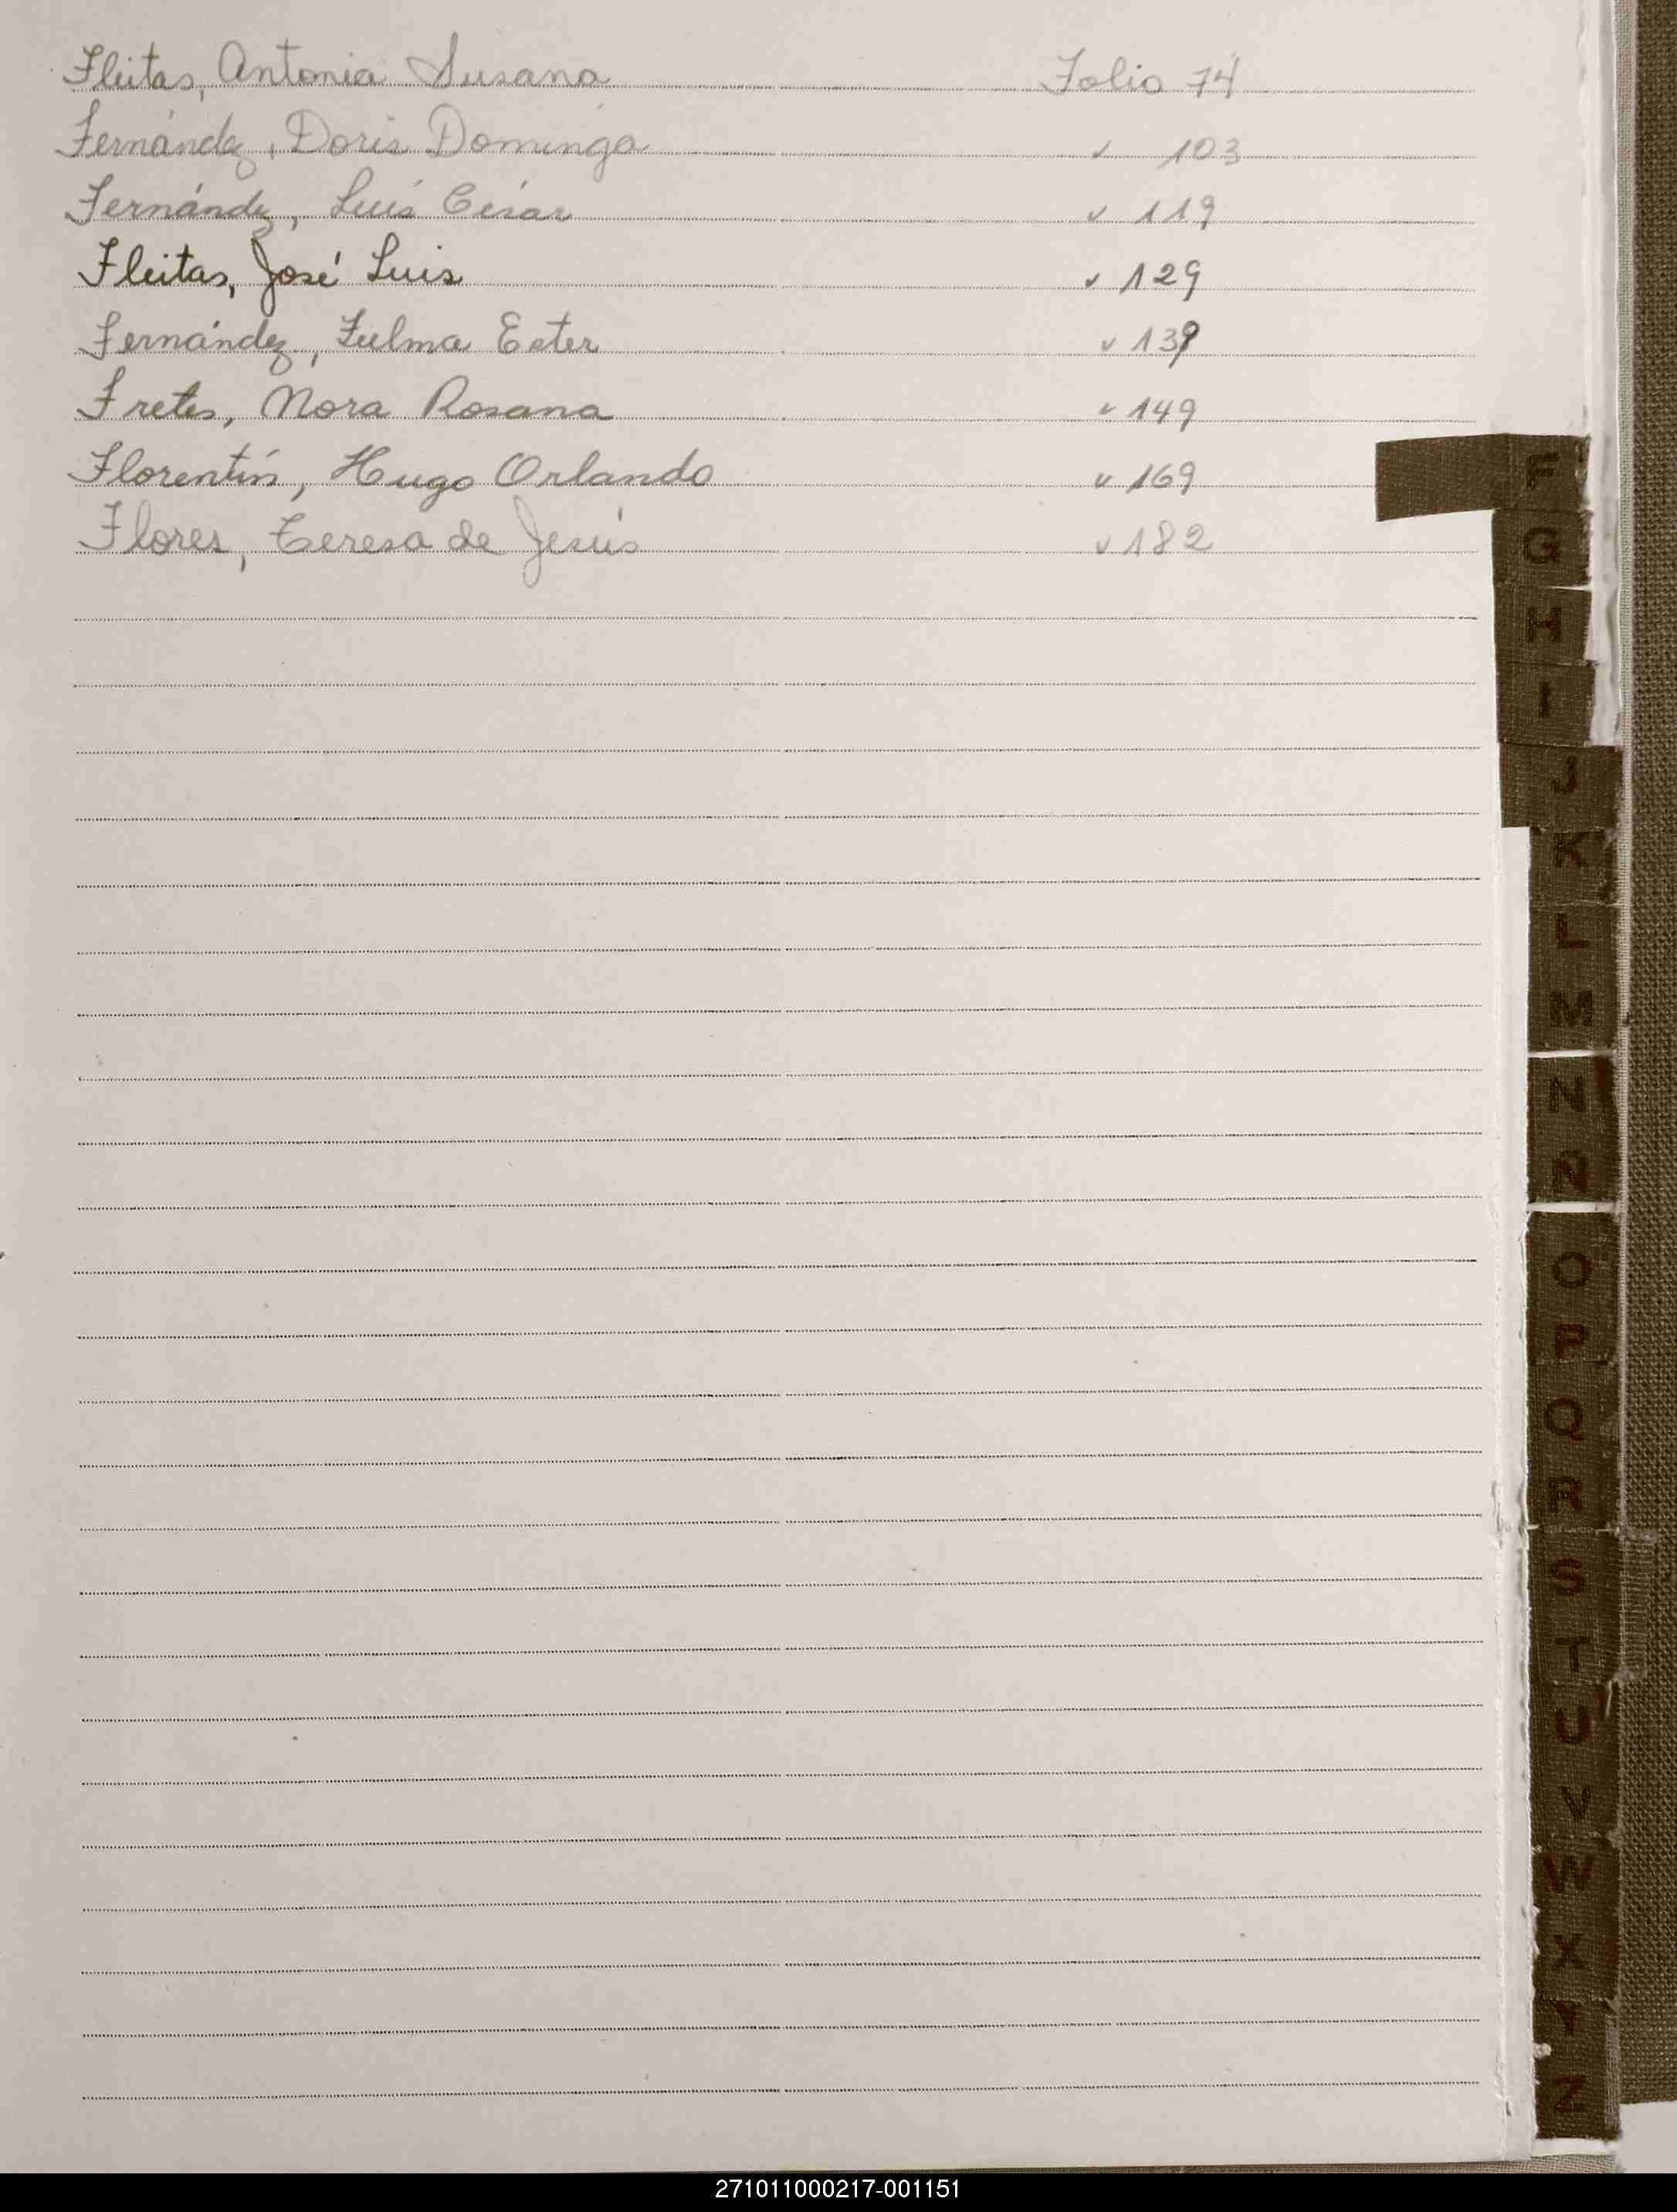 Fleitas, Antonia Susana Folio 74
Fernández, Doris Dominga " 103
Fernández, Luis César " 119
Fleitas, José Luis " 129
Fernández, Zulma Ester " 139
Fretes, Nora Rosana " 149
Florentín, Hugo Orlando " 169
Flores, Teresa de Jesús " 182
F
G
H
I
J
K
L
M
N
Ñ
O
P
Q
R
S
T
U
V
W
X
Y
Z
271011000217-001151